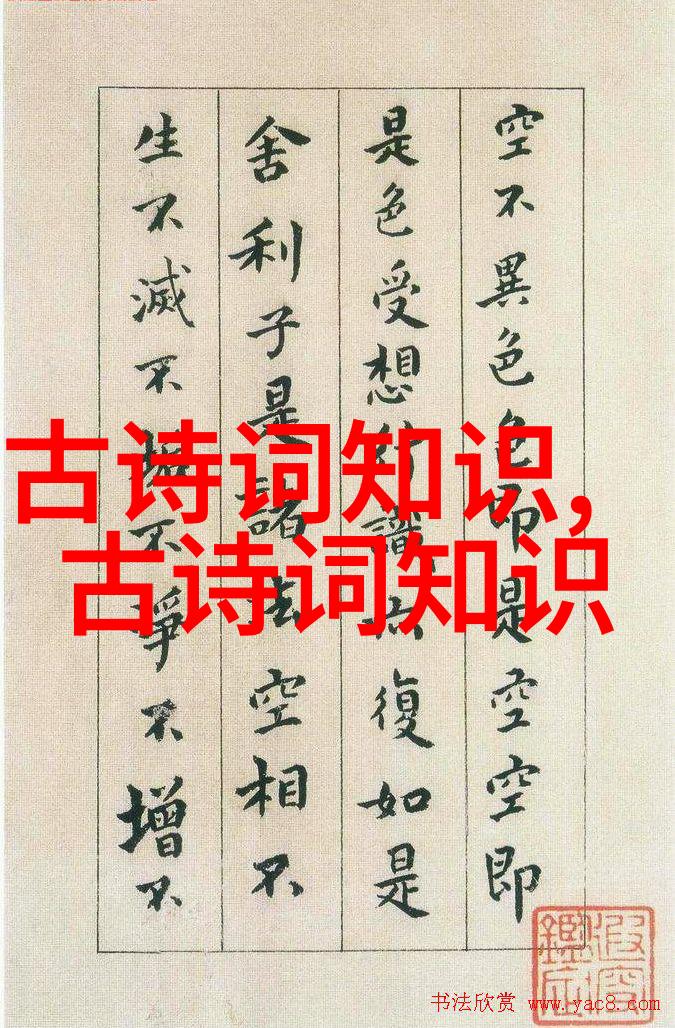 空不異色色即是空空即
是色受想行識亦復如是
舍利子是諸法空相不
生不滅不垢不淨不增不
古诗词知识,
古诗词知识
书法欣赏 www.yac8.com